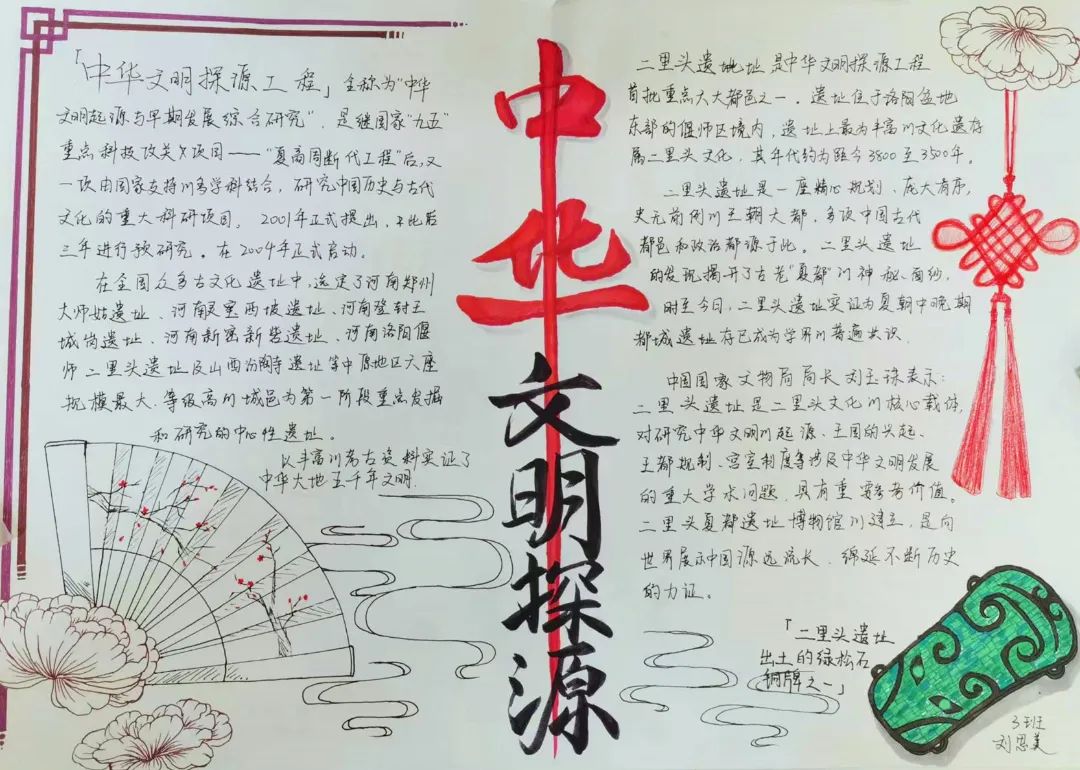 「中华文明探源工程」全称为"中华
文明起源与早期发展综合研究"，是继国家"九五"
重点科技攻关项目——"夏商周断代工程"后,又
一项由国家支持的多学科结合，研究中国历史与古代
文化的重大科研项目，2001年正式提出，此后
三年进行预研究。在2004年正式启动。
在全国众多古文化遗址中,选定了河南郑州
大师姑遗址、河南灵宝西坡遗址、河南登封王
城岗遗址、河南新密新砦遗址、河南洛阳偃
师二里头遗址及山西汾陶寺遗址等中原地区六座
规模最大、等级高的城邑为第一阶段重点发掘
和研究的中心性遗址。
以丰富的考古资料实证了
中华大地五千年文明.
中华
文明探源
二里头遗址是中华文明探源工程
首批重点六大都邑之一。遗址位于洛阳盆地
东部的偃师区境内，遗址上最为丰富的文化遗存
属二里头文化，其年代约为距今3800至3500年。
二里头遗址是一座精心规划、庞大有序，
史无前例的王朝大都，多项中国古代
都邑和政治都源于此。二里头遗址
的发现揭开了古老"夏都"的神秘面纱，
时至今日，二里头遗址实证为夏朝中晚期
都城遗址存已成为学界的普遍共识.
中国国家文物局局长刘玉珠表示：
二里头遗址是二里头文化的核心载体，
对研究中华文明的起源、王国的兴起、
王都规制、宫室制度等涉及中华文明发展
的重大学术问题，具有重要参考价值。
二里头夏都遗址博物馆的建立，是向
世界展示中国源远流长、绵延不断历史
的力证。
「二里头遗址
出土的绿松石
铜牌之一」
3班
刘思美